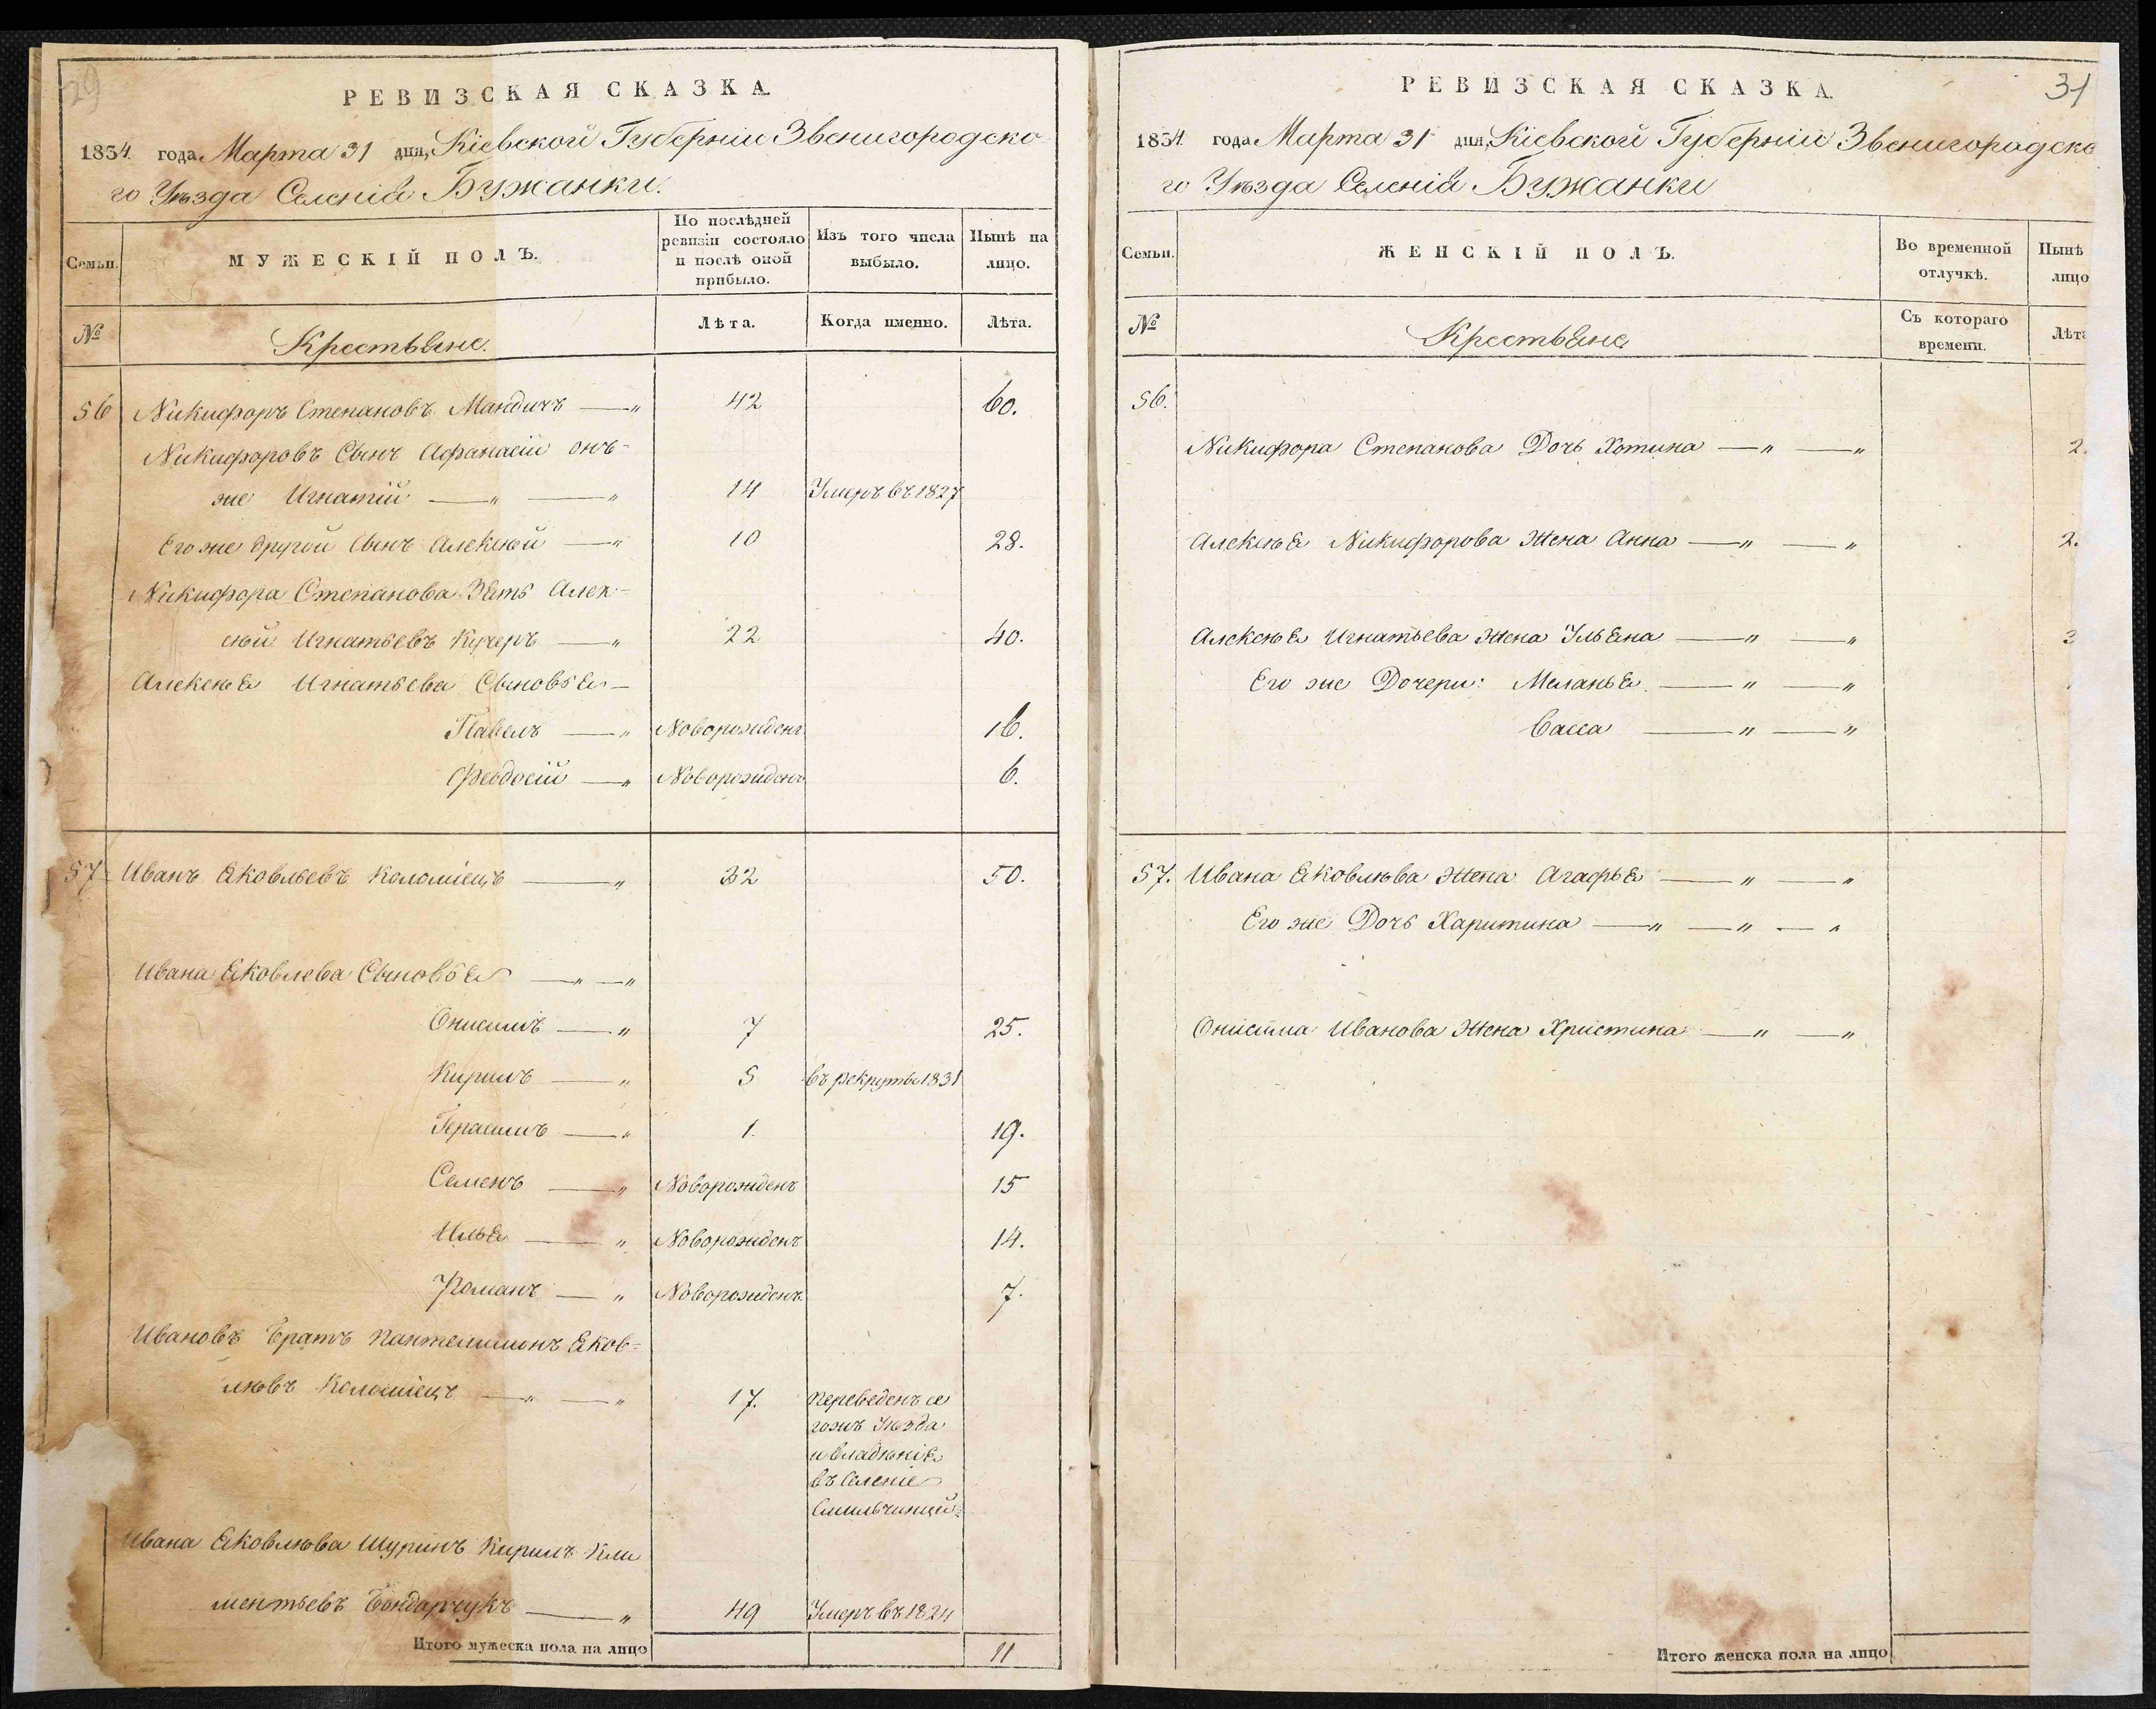 29
РЕВИЗСКАЯ СКАЗКА.
1834. года Марта 31 дня, Кіевской Губерніи Звенигородско-
го Уѣзда Селенія Бужанки.
Семьи.
МУЖЕСКІЙ ПОЛЪ.
По послѣдней ревизіи состояло и послѣ оной прибыло.
Изъ того числа выбыло.
Нынѣ на лицо.
№
Крестьяне.
Лѣта.
Когда именно.
Лѣта.
56 Никифоръ Степановъ Мандичъ — „ 42 60.
Никифоровъ Сынъ Афанасій онъ-
же Игнатій — „ — „ 14 Умеръ въ 1827
Его же другой Сынъ Алексѣй — „ 10 28.
Никифора Степанова Зять Алек-
сѣй Игнатьевъ Кучеръ — „ 22 40.
Алексѣя Игнатьева Сыновья —
Павелъ — „ Новорожденъ 16.
Феодосій — „ Новорожденъ 6.
57 Иванъ Яковлевъ Коломіецъ — „ 32 50.
Ивана Яковлева Сыновья — „ — „
Онисимъ — „ 7 25.
Кирилъ — „ 5 въ рекруты 1831
Герасимъ — „ 1. 19.
Семенъ — „ Новорожденъ 15
Илья — „ Новорожденъ 14.
Романъ — „ Новорожденъ 7.
Ивановъ Братъ Пантелимонъ Яков-
лѣвъ Коломіецъ — „ — „ 17. Переведенъ се
гожъ Уѣзда
и владѣнія
въ Селеніе
Ивана Яковлѣва Шуринъ Кирилъ Кли
ментьевъ Бондарчукъ — „ 49 Умеръ въ 1824
Итого мужеска пола на лицо 11
31
РЕВИЗСКАЯ СКАЗКА.
1834. года Марта 31 дня, Кіевской Губерніи Звенигородско
го Уѣзда Селенія Бужанки
Семьи.
ЖЕНСКІЙ ПОЛЪ.
Во временной отлучкѣ.
Нынѣ лицо
№
Крестьяне
Съ котораго времени.
Лѣта
56.
Никифора Степанова Дочь Хотина — „ — „ 2.
Алексѣя Никифорова Жена Анна — „ — „ 2.
Алексѣя Игнатьева Жена Ульяна — „ — „ 3
Его же Дочери: Меланья — „ — „
Васса — „ — „
57. Ивана Яковлѣва Жена Агафья — „ — „
Его же Дочь Харитина — „ — „ — „
Онисима Иванова Жена Христина — „ — „
Итого женска пола на лицо